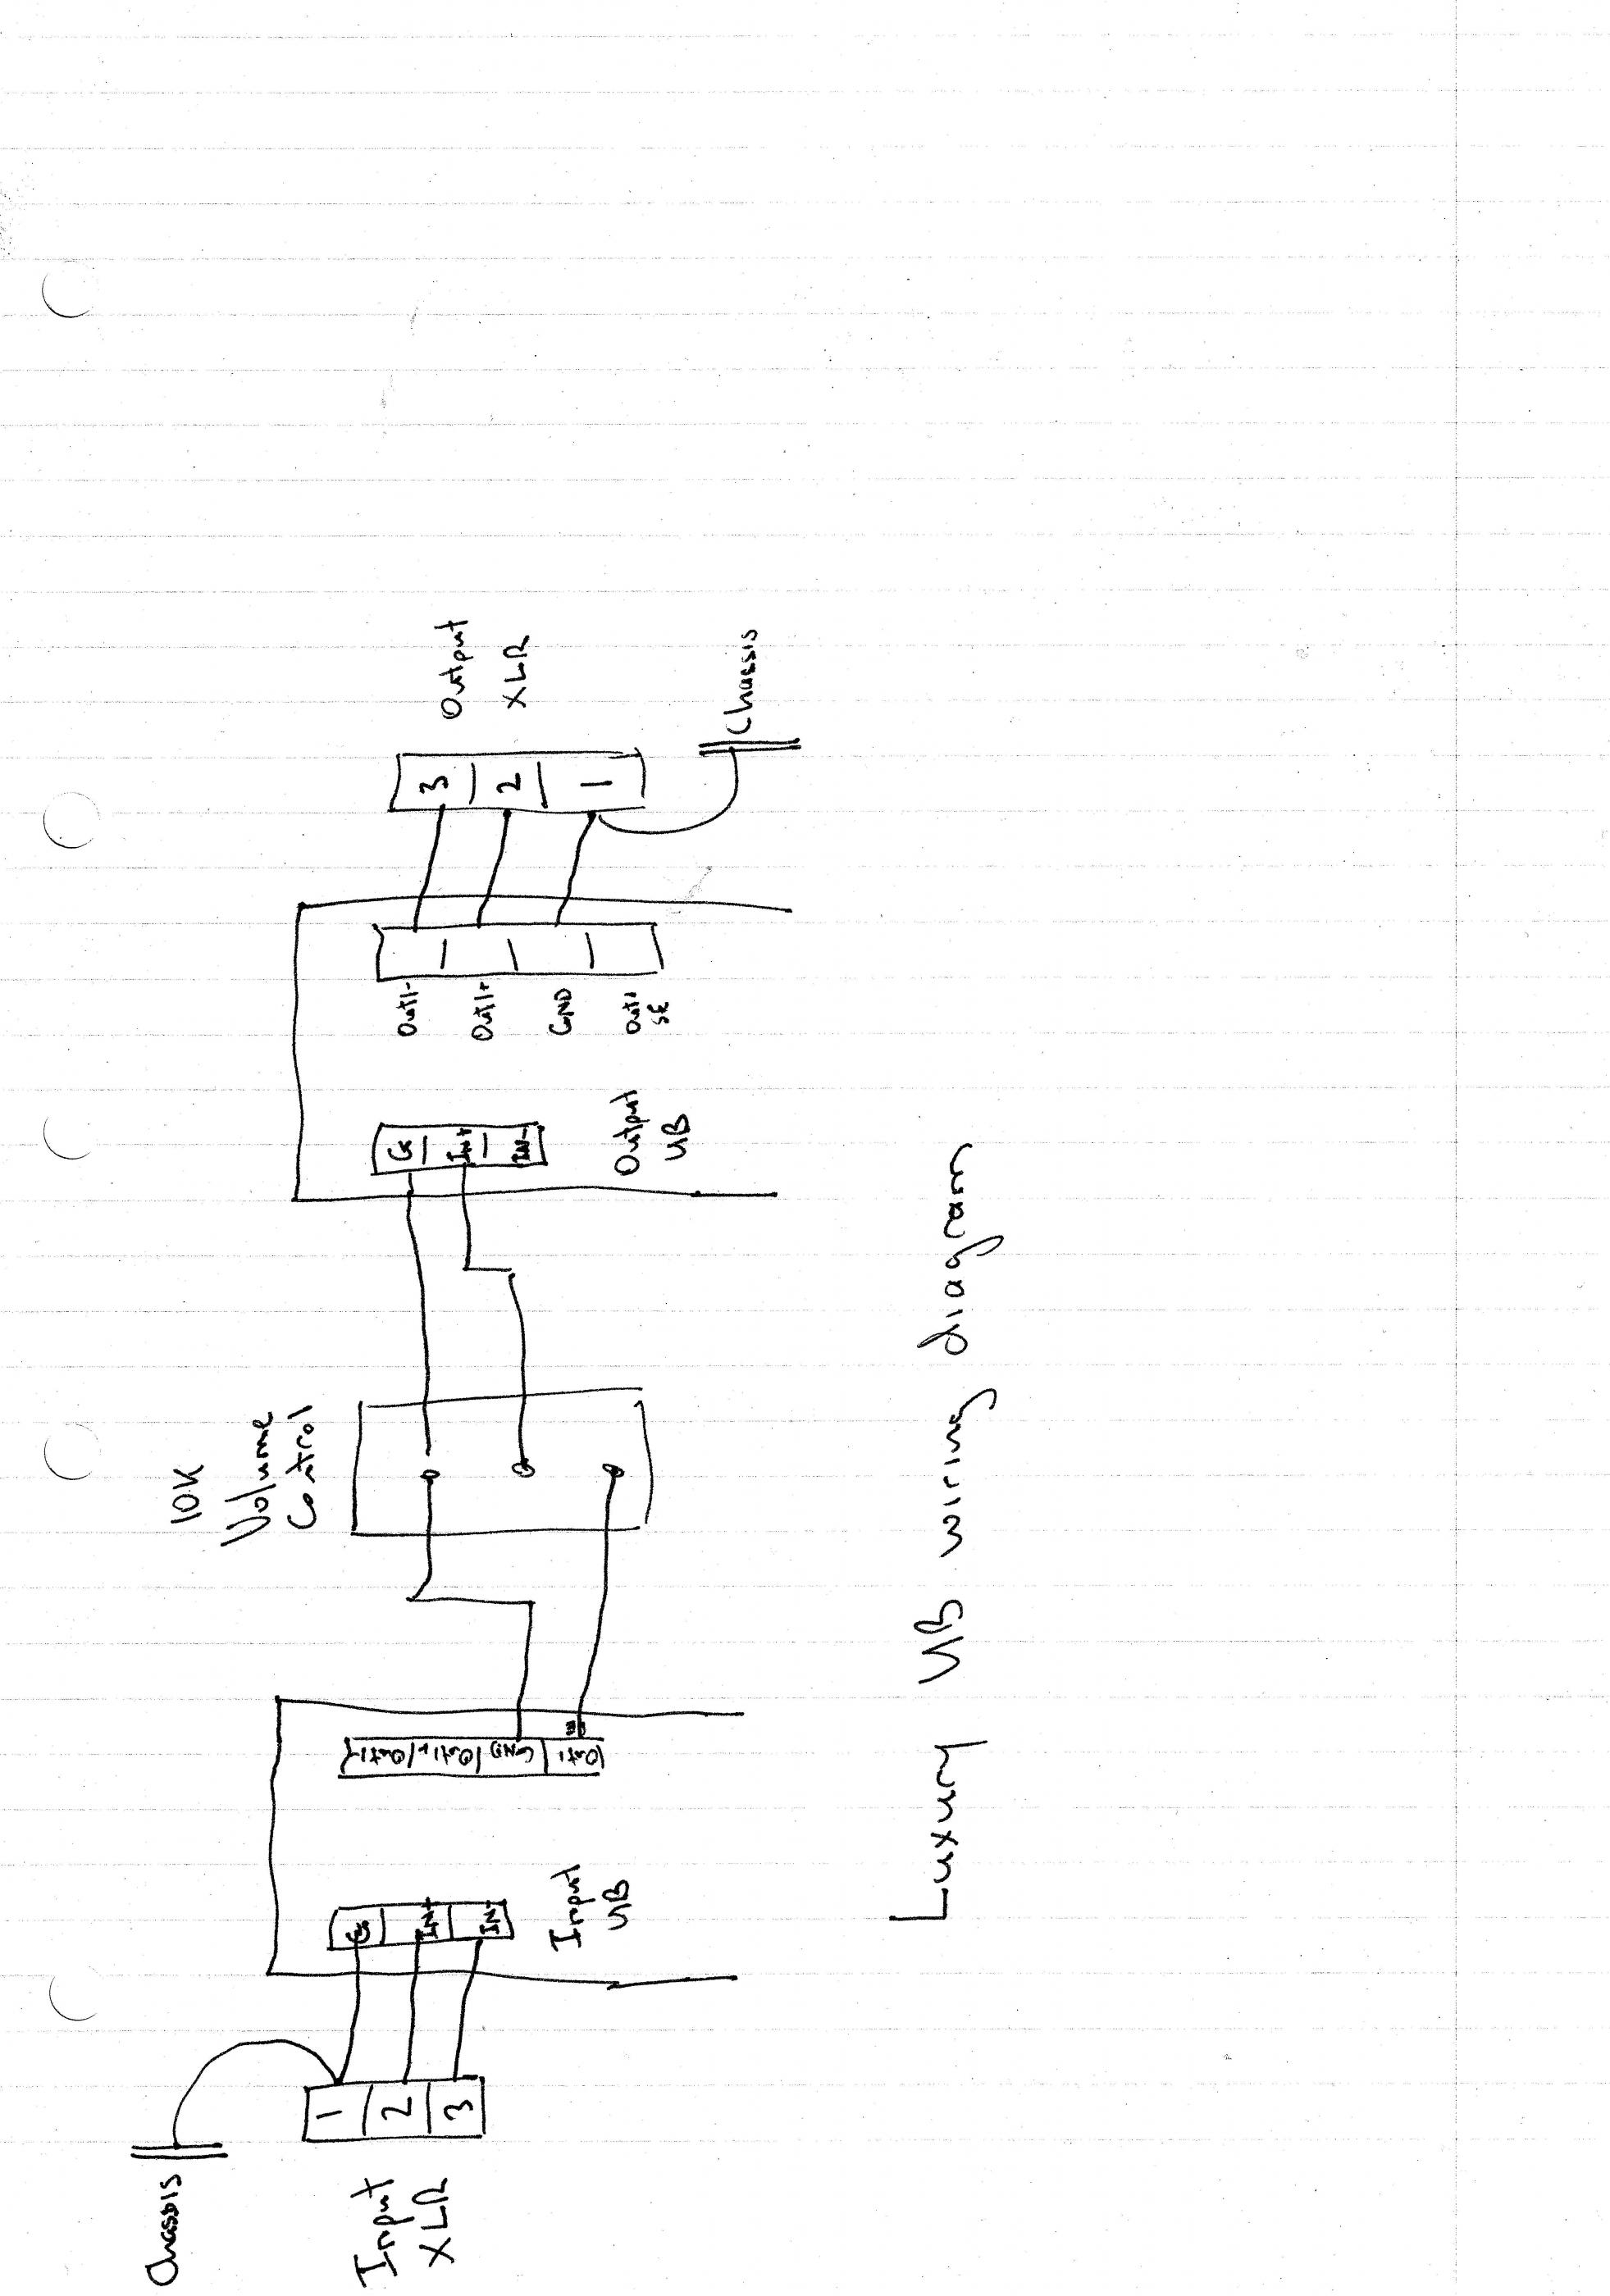 Chassis
Input
XLR
1
2
3
G
IN+
IN+
Input
UB
Out1-
Out1+
GND
Out1
SE
10K
Volume
Control
G
IN+
IN-
Output
UB
Out1-
Out1+
GND
Out1
SE
3
2
1
Output
XLR
Chassis
Luxury UB wiring diagram